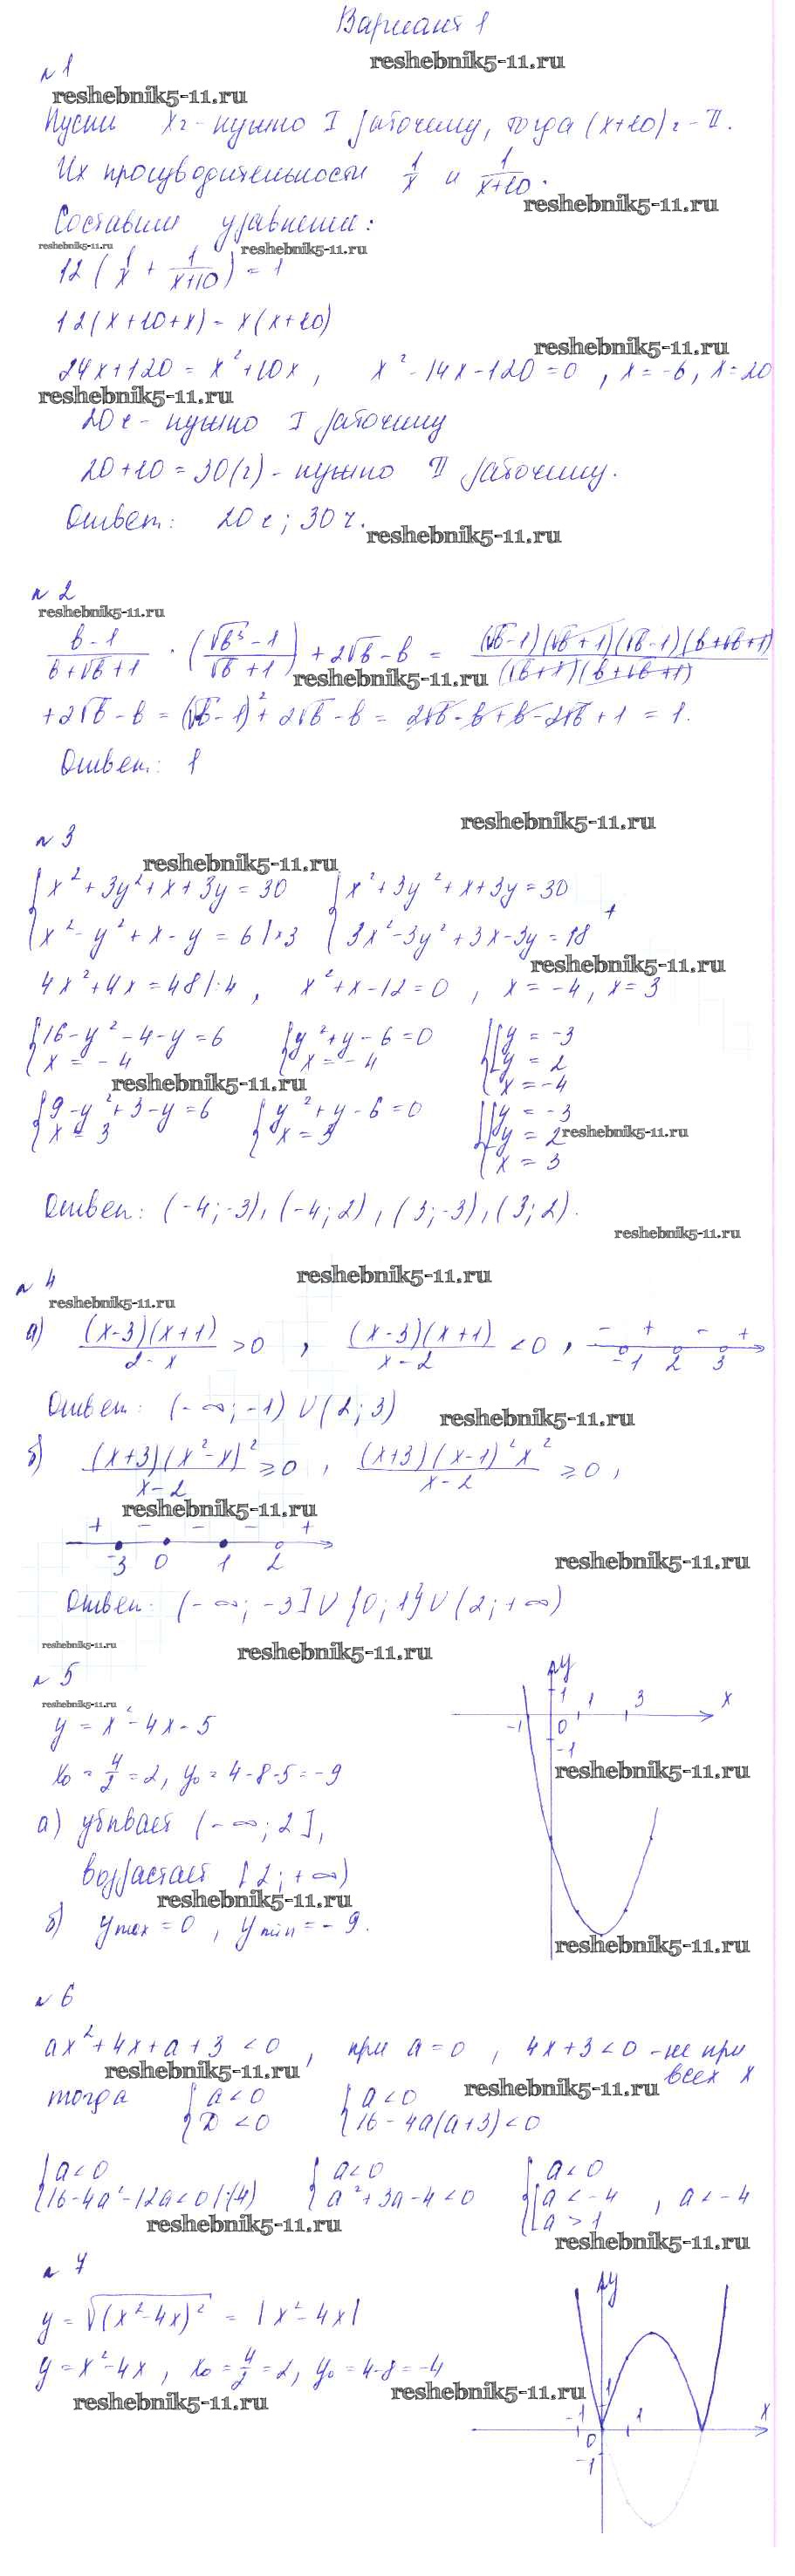 Вариант 1
reshebnik5-11.ru
№1
reshebnik5-11.ru
Пусть xч - нужно I рабочему, тогда (x+10)ч - II.
Их производительности 1/x и 1/(x+10).
reshebnik5-11.ru
Составим уравнение:
reshebnik5-11.ru reshebnik5-11.ru
12(1/x + 1/(x+10)) = 1
12(x+10+x) = x(x+10)
reshebnik5-11.ru
24x+120 = x²+10x, x²-14x-120=0, x=-6, x=20
reshebnik5-11.ru
20ч - нужно I рабочему
20+10=30(ч) - нужно II рабочему.
Ответ: 20ч; 30ч.
reshebnik5-11.ru
№2
reshebnik5-11.ru
(b-1)/(b+√b+1) · ((√b³-1)/(√b+1)) + 2√b - b = ((√b-1)(√b+1)(√b-1)(b+√b+1))/((√b+1)(b+√b+1))
reshebnik5-11.ru
+2√b-b = (√b-1)²+2√b-b = 2√b-b+b-2√b+1 = 1.
Ответ: 1
reshebnik5-11.ru
№3
reshebnik5-11.ru
{x²+3y²+x+3y=30 {x²+3y²+x+3y=30
{x²-y²+x-y=6|×3 {3x²-3y²+3x-3y=18 +
reshebnik5-11.ru
4x²+4x=48|:4, x²+x-12=0, x=-4, x=3
{16-y²-4-y=6 {y²+y-6=0 {[y=-3
{x=-4 {x=-4 {[y=2
{x=-4
reshebnik5-11.ru
{9-y²+3-y=6 {y²+y-6=0 {[y=-3
{x=3 {x=3 {[y=2
reshebnik5-11.ru
{x=3
Ответ: (-4;-3), (-4;2), (3;-3), (3;2).
reshebnik5-11.ru
reshebnik5-11.ru
№4
reshebnik5-11.ru
а) ((x-3)(x+1))/(2-x) >0, ((x-3)(x+1))/(x-2) <0, - + - +
-1 2 3
Ответ: (-∞;-1)∪(2;3)
reshebnik5-11.ru
б) ((x+3)(x²-x)²)/(x-2) ≥0, ((x+3)(x-1)²x²)/(x-2) ≥0,
reshebnik5-11.ru
+ - - - +
-3 0 1 2
reshebnik5-11.ru
Ответ: (-∞;-3]∪{0;1}∪(2;+∞)
reshebnik5-11.ru reshebnik5-11.ru
№5
reshebnik5-11.ru
y=x²-4x-5
x₀=4/2=2, y₀=4-8-5=-9
а) убывает (-∞;2],
возрастает [2;+∞)
reshebnik5-11.ru
б) ymax=0, ymin=-9.
y
1 1 3 x
-1 0
-1
reshebnik5-11.ru
reshebnik5-11.ru
№6
ax²+4x+a+3<0, при a=0, 4x+3<0 - не при
всех x
reshebnik5-11.ru reshebnik5-11.ru
тогда {a<0 {a<0
{D<0 {16-4a(a+3)<0
{a<0 {a<0 {a<0
{16-4a²-12a<0|:(4) {a²+3a-4<0 {[a<-4, a<-4
{[a>1
reshebnik5-11.ru reshebnik5-11.ru
№7
y=√((x²-4x)²) = |x²-4x|
y=x²-4x, x₀=4/2=2, y₀=4-8=-4
reshebnik5-11.ru reshebnik5-11.ru
y
1
-1 1 x
0
-1